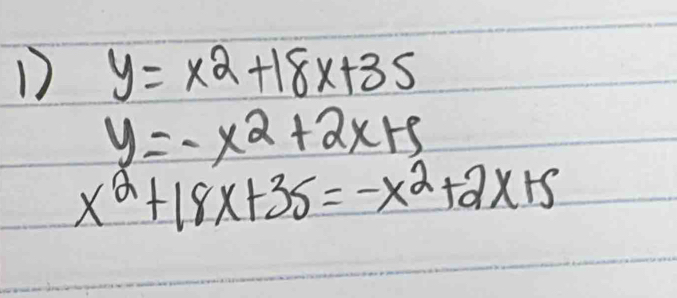 1) y = x2 + 18x + 35
y = -x2 + 2x + 5
x² + 18x + 35 = -x² + 2x + 5